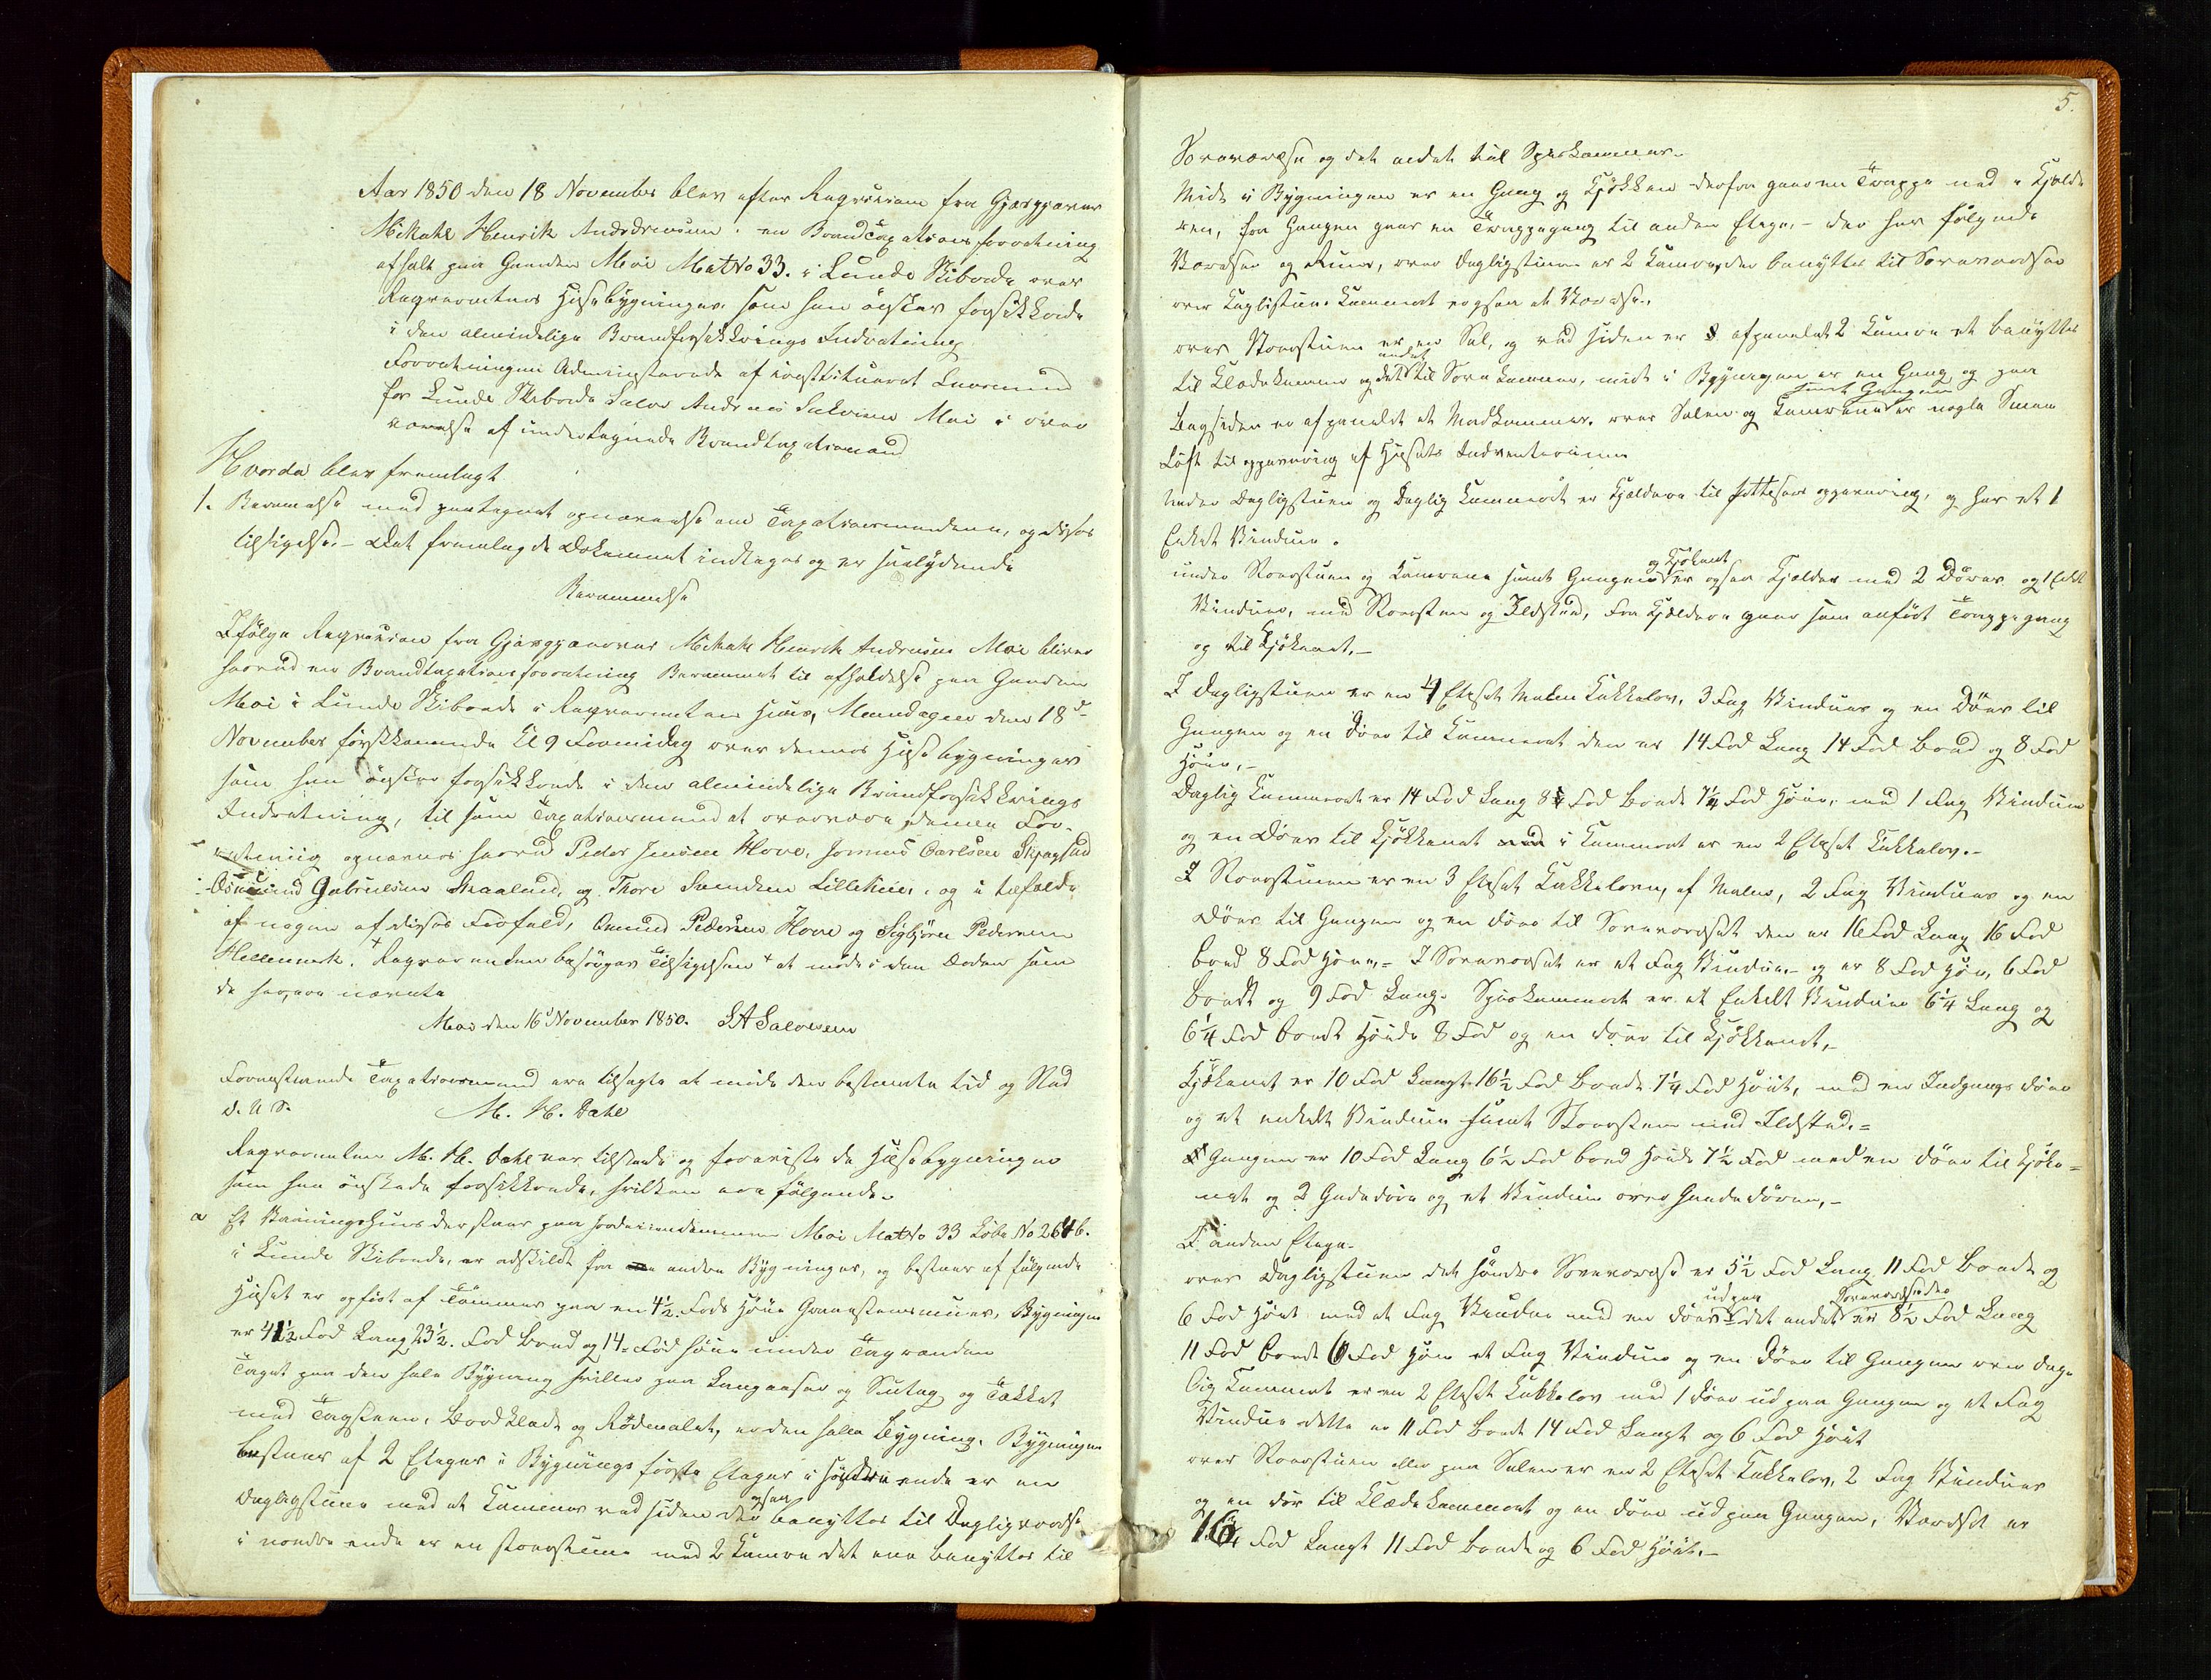 Aar 1850 den 18 November blev efter Reqvisision fra Gjæsgjæver
Mikahl Henrik Anddreassen. en Brandtaxations forretning
afhalt paa Gaarden Moi Mat No 33. i Lunde Skibrede over
Reqvirentens Huusebygninger som han ønsker forsikkrede
i den almindelige Brandforsikkrings Indretning
Forretningen Administerede af constitueret Lensmand
for Lunde Skibrede Salve Andreas Salvesen Moi i over
værelse af undertegnede Brandtaxationsmænd
Hvorda blev fremlagt
1. Berammelse med paategnet opnævnelse om Taxationsmændene, og disses
tilsigelse. – Det fremlagde Dokument indtages og er saalydende
Berammelse
Ifølge Reqvisision fra Gjæsgjæver Mikahl Henrik Andresen Moi bliver
herved en Brandtaxationsforretning Berammet til afholdelse paa Gaarden
Moi i Lunde Skibrede i Reqvirentens Huus, Mandagen den 18de
November førstkommende Kl 9 Formidag over dennes Huusebygninger
som han ønsker forsikkrede i den almindelige Brandforsikkrings
Indretning, til som Taxationsmænd at overvære denne For-
retning opnævnes herved Peder Jensen Hove, Carlsen
Osmund Gabrielsen Skaalund, og Thore Svendsen Lilleheie, og i tilfælde
af nogen af disses Forfald, Omund Pedersen Hove og Sigbjørn Pedersen
Hellemark. + Reqvirenten besørger Tilsigelsen + at møde i den Orden som
de herover nævnte
Moi den 16d November 1850. SA Salvesen
Foranstaaende Taxationsmænd ere tilsagte at møde den bestemte tid og Sted
d. U S. M. H. Dahl
Reqvirenten M. H. Dahl var tilstede og foreviste de Huusebygninger
som han ønskede forsikkrede, hvilken ere følgende.
a Et Vaaningshuus der staar paa Jordeiendommen Moi Mat No 33 Løbe No 264b.
i Lunde Skibrede, er adskildt fra andre Bygninger, og bestaar af følgende
Huset er opført af Tømmer paa en 4½ Fods Høie Graastensmuur, Bygningen
er 41½ Fod Lang 23½. Fod Bred og 14 Fod høie under Tagranden
Taget paa den hele Bygning hviller paa Langaaser og og Tækket
med Tagsteen, Bordklædt og Rødmalet, er den hele Bygning. Bygningen
bestaar af 2 Etager i Bygnings første Etager i søndre ende er en
Dagligstue med et Kammer ved siden der ogsaa benyttes til Dagligværelse
i nordre ende er en storstue med 2 Kamre det ene benyttes til
5.
Soveværelse og det andet til Spiskammer.
Midt i Bygningen er en Gang og Kjøkken derfra gaar en Trappe ned i Kjelde
ren, fra Gangen gaar en Trappegang til anden Etage, – der har følgende
Værelser og Rum, over dagligstuen er 2 Kamre, der benyttes til Soveværelser
over Daglistue Kammeret ogsaa et Værelse.,
over Storstuen er en Sal, og ved siden er afpanelet 2 Kamre et benyttes
til Klædekammer og det andet til Sovekammer, midt i Bygningen er en Gang og paa
Bagsiden er afpanelet et Madkammer. over Salen og Kamrene samt Gangen er nogle Smaa
Loft til oppevaring af Husets Indventarium
Under Dagligstuen og Daglig Kammeret er Kjeldere til oppevaring, og har et 1
Enkelt Vindue.
under Storstuen og Kamrene samt Gangen og Kjøkenet er ogsaa Kjelder med 2 Dører og 1 Enkelt
Vindue, med Storsten og Ildsted, fra Kjelderen gaar som anført Trappegang
op til Kjøkenet. –
I dagligstuen er en 4 Etages Malm Kakkelov, 3 Fag Vinduer og en Døer til
Gangen og en Dør til Kammeret den er 14 Fod Lang 14 Fod Bred og 8 Fod
Høie, –
Daglig Kammeret er 14 Fod Lang 8¼ Fod Bredt 7¼ Fod Høie, med 1 Fag Vindue
og en Døer til Kjøkkenet i Kammeret er en 2 Etages Kakkelov. –
I Storstuen er en 3 Etages Kakkelovn, af Malm, 2 Fag Vinduer og en
Døer til Gangen og en Dør til Soveværelset den er 16 Fod Lang 16 Fod
bred 8 Fod Høie. – I Soveværelset er et Fag Vindue, – og er 8 Fod Høie, 6 Fod
bredt og 9 Fod Lang. Spiskammeret er et Enkelt Vindue 6¼ Lang og
6¼ Fod bredt Høide 8 Fod og en Dør til Kjøkkenet, –
Kjøkenet er 10 Fod Langt 16½ Fod Bredt 7¼ Fod Høit, med en Indgangs Dør
og et enkelt Vindue samt Storsten med Ildsted. =
Gangen er 10 Fod Lang 6½ Fod bred Høide 7½ Fod med en Dør til Kjøke =
net og 2 Gadedøre og et Vindue over Gaadedøren, –
I anden Etage.
over Dagligstuen det søndre Soveværelse er 5½ Fod Lang 11 Fod Bredt og
6 Fod Høit med et Fag Vindue med en Døer udpaa det andet Soveværelse der er 8½ Fod Lang
11 Fod bredt 6 Fod Høie et Fag Vindue og en Dør til Gangen over Dag-
lig Kammeret er en 2 Etages Kakkelov med 1 Dør ud paa Gangen og et Fag
Vindue dette er 11 Fod Bredt 14 Fod Langt og 6 Fod Høit
over Storstuen eller paa Salen er en 2 Etages Kakkelov, 2 Fag Vinduer
og en dør til Klædekammeret og en Døer ud paa Gangen, Værelset er
16 Fod Langt 11 Fod bredt og 6 Fod Høit, –